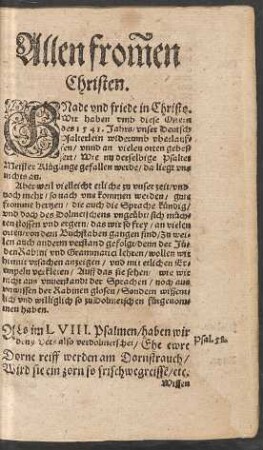 Allen from̄en
Christen.
GNade vnd friede in Christo.
Wir haben vmb diese Ostern
des 1541. Jahrs/ vnser Deutsch
Psalterlein widerumb vberlauf-
sen/ vnnd an vielen orten gebess
ert/ Wie nu derselbige Psalter
Meister Klüglinge gefallen werde/ da liegt vns
nichts an.
Aber weil vielleicht etliche zu vnser zeit/ vnd
noch mehr/ so nach vns kommen werden/ gute
fromme hertzen/ die auch die Sprache kündig/
vnd doch des Dolmetschens vngeübt/ sich möch-
ten stossen vnd ergern/ das wir so frey/ an vielen
orten/ von dem Buchstaben gangen sind/ zu wei-
len auch anderm verstand gefolgt/ denn der Jü-
den Rabini vnd Grammatici lehren/ wollen wir
hiemit vrsachen anzeigen/ vnd mit etlichen Ex-
empeln verkleren/ Auff das sie sehen/ wie wir
nicht aus vnuerstandt der Sprachen/ noch aus
vnwissen der Rabinen glosen/ Sondern wissent-
lich vnd williglich so zu Dolmetschen fürgenom-
men haben.
Als im LVIII. Psalmen/ haben wir
den 9. Vers also verdolmetschet/ Ehe ewre
Psal. 58.
Dorne reiff werden am Dornstrauch/
Wird sie ein zorn so frisch wegreisse/ etc.
Wissen